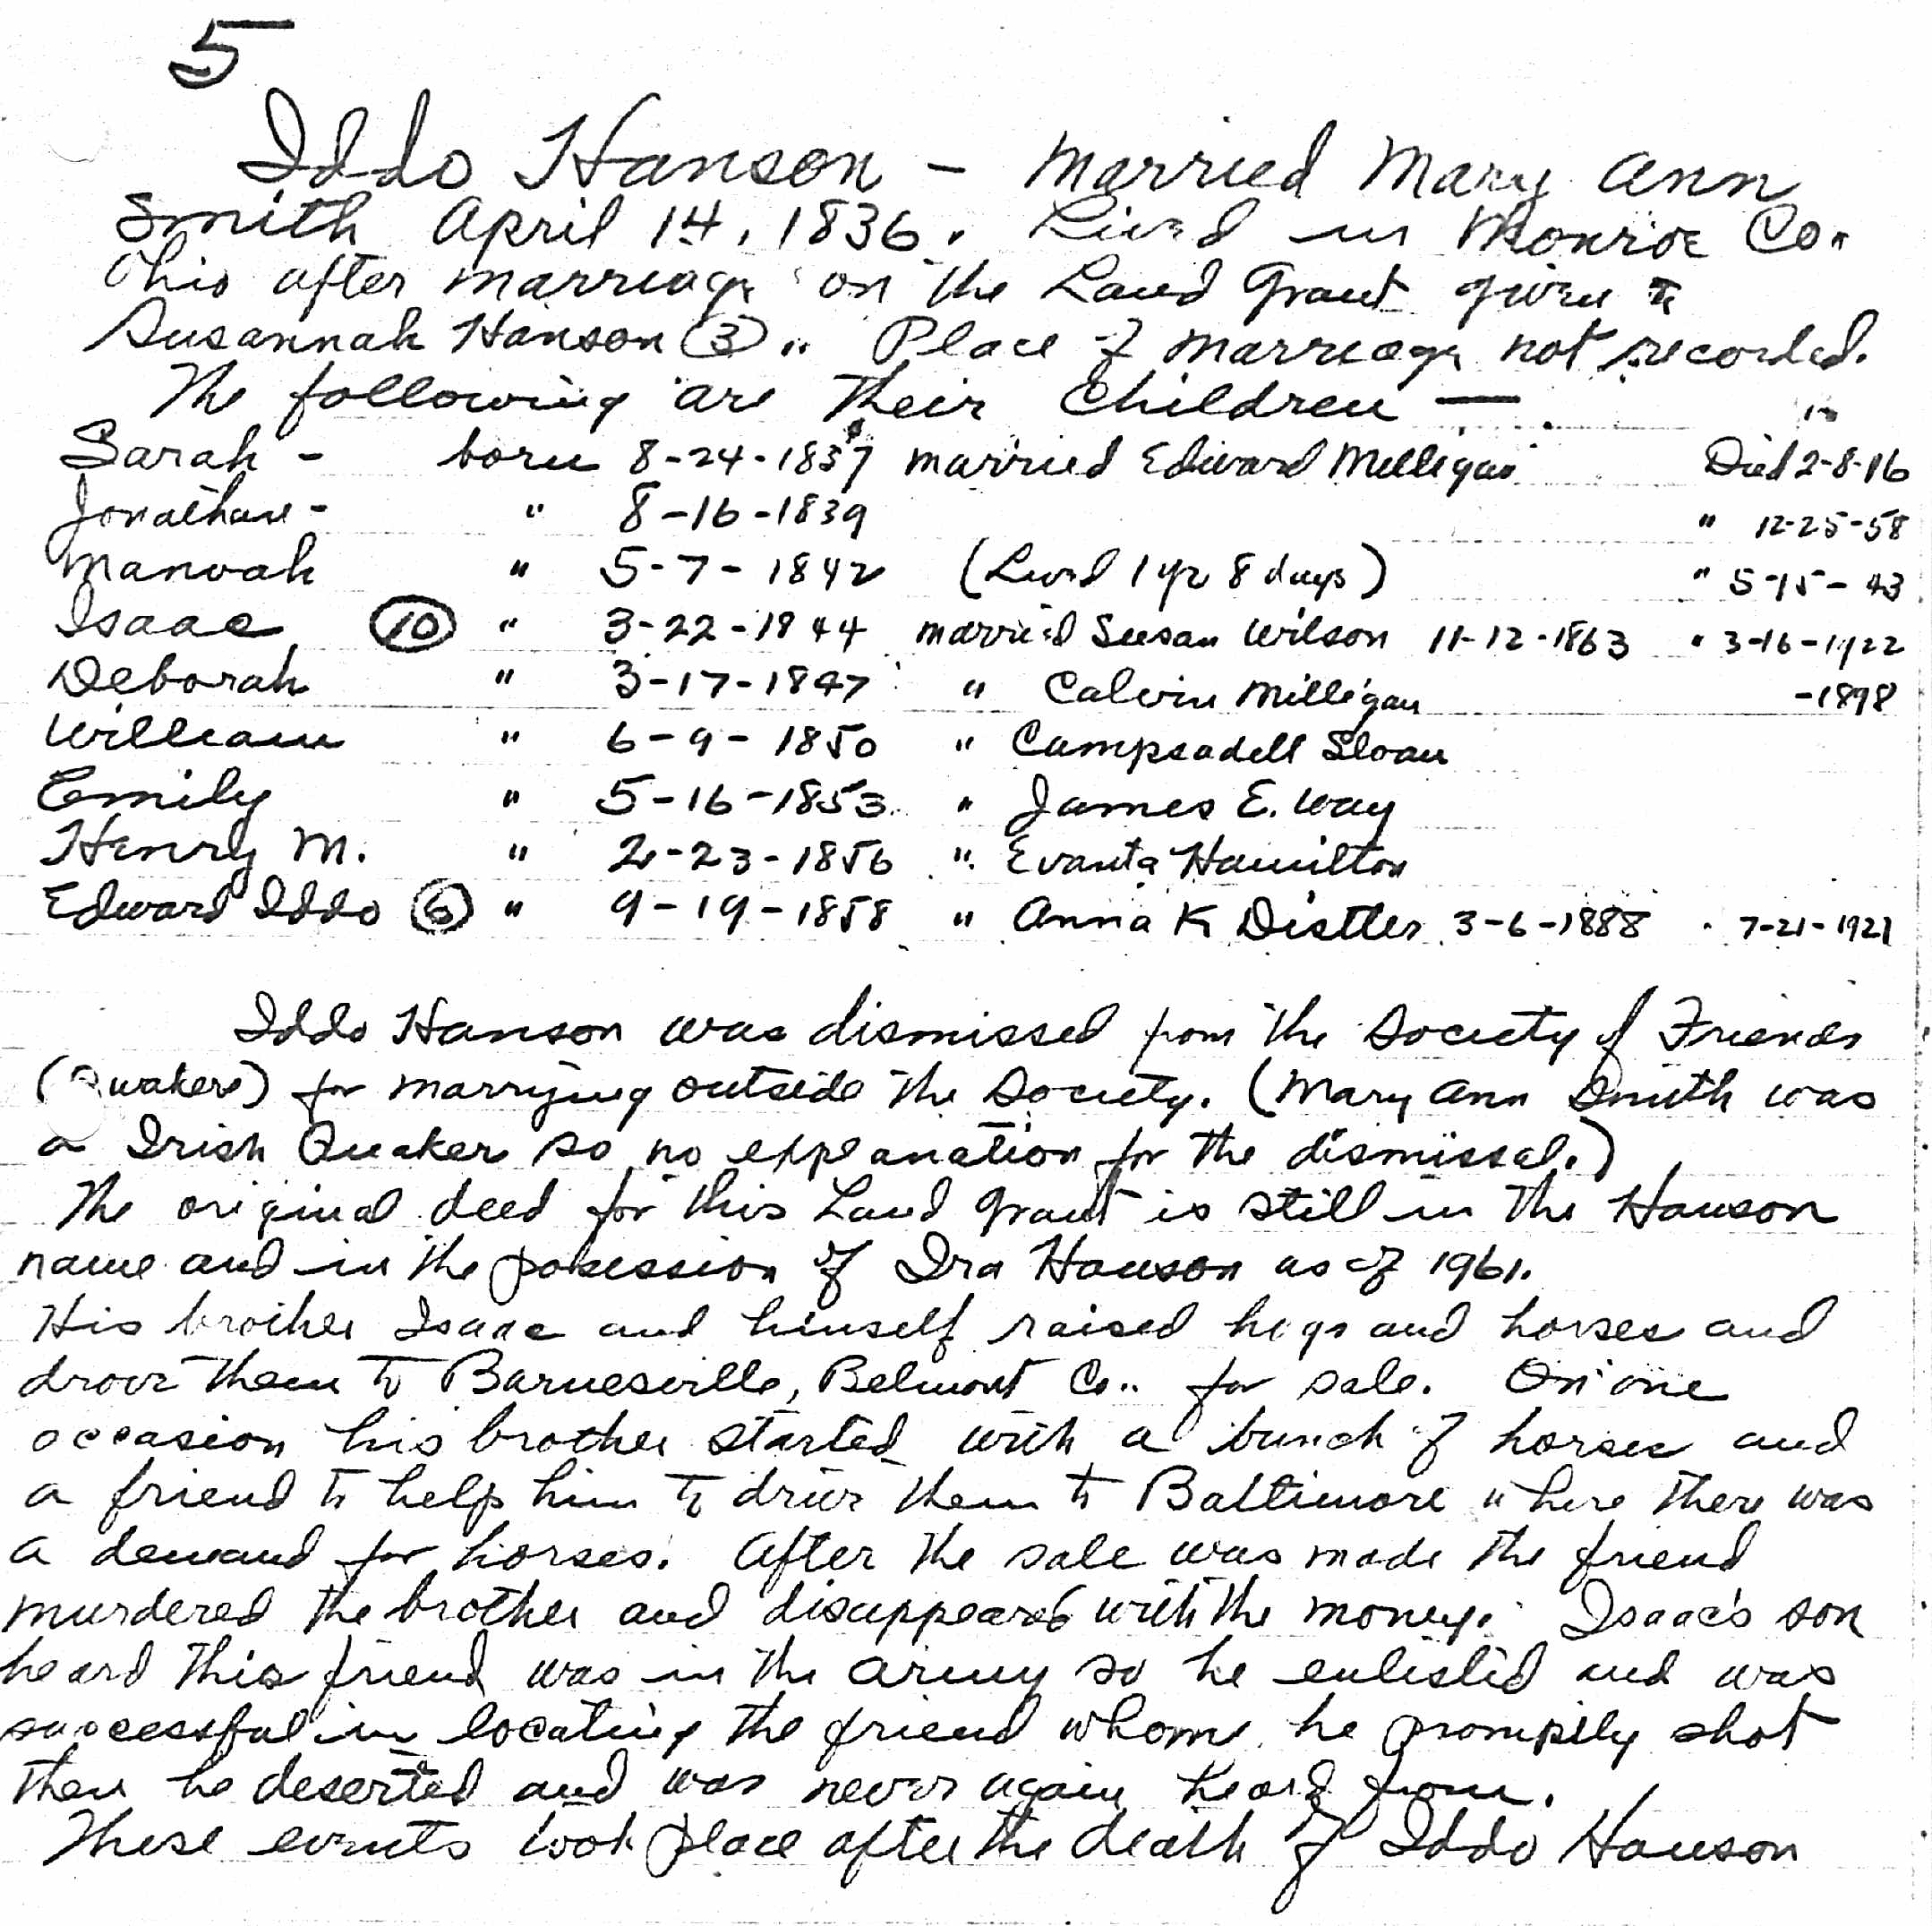 5
Iddo Hanson - Married Mary Ann
Smith April 14, 1836. Lived in Monroe Co.
Ohio after marriage on the Land Grant given to
Susannah Hanson (3). Place of marriage not recorded.
The following are their Children —
Sarah - born 8-24-1837 married Edward Milligan Died 2-8-16
Jonathan - " 8-16-1839 " 12-25-58
Manoah " 5-7-1842 (Lived 1 yr 8 days) " 5-15-43
Isaac (10) " 3-22-1844 married Susan Wilson 11-12-1863 " 3-16-1922
Deborah " 3-17-1847 " Calvin Milligan -1898
William " 6-9-1850 " Campsadell Sloan
Emily " 5-16-1853 " James E. Way
Henry M. " 2-23-1856 " Evanta Hamilton
Edward Iddo (6) " 9-19-1858 " Anna K Distler 3-6-1888 " 7-21-1921
Iddo Hanson was dismissed from the Society of Friends
(Quakers) for marrying outside the Society. (Mary Ann Smith was
a Irish Quaker so no explanation for the dismissal.)
The original deed for this Land Grant is still in the Hanson
name and in the posession of Ira Hanson as of 1961.
His brother Isaac and himself raised hogs and horses and
drove them to Barnesville, Belmont Co.. for sale. On one
occasion his brother started with a bunch of horses and
a friend to help him to drive them to Baltimore where there was
a demand for horses. After the sale was made the friend
murdered the brother and disappeared with the money. Isaac's son
heard this friend was in the army so he enlisted and was
successful in locating the friend whom he promptly shot
then he deserted and was never again heard from.
These events took place after the death of Iddo Hanson